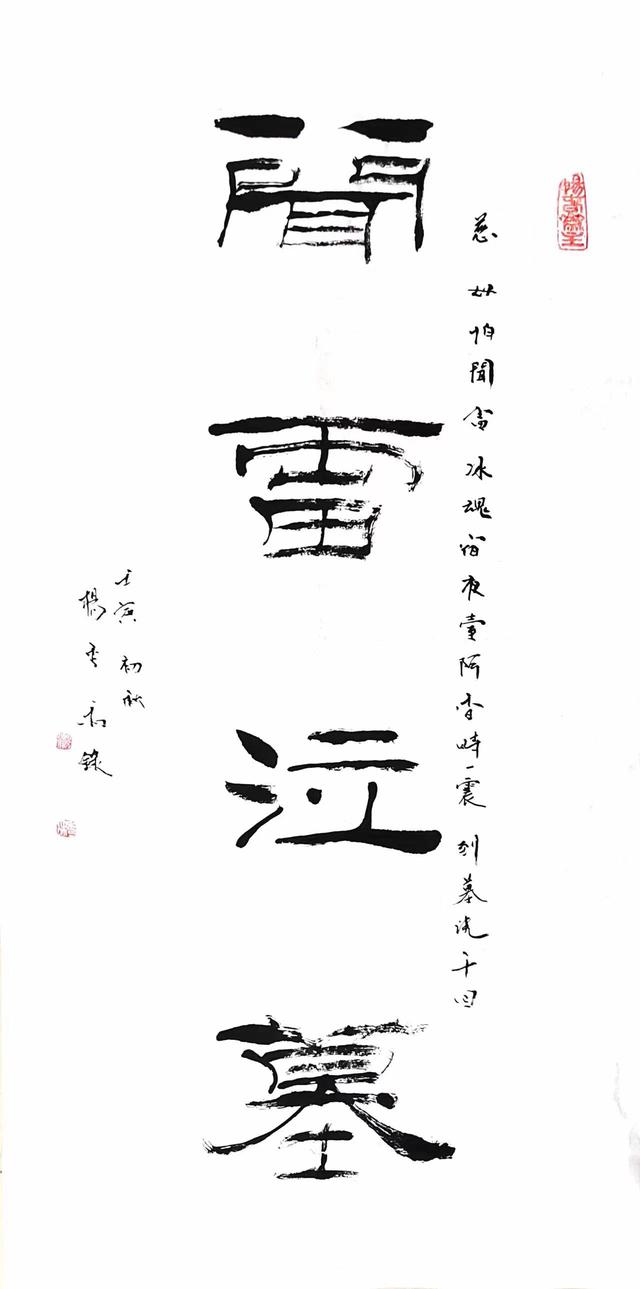 慈母怕聞雷冰魂宿夜臺阿香時一震到墓遶千回
聞雷泣墓
壬寅初秋
楊和錄